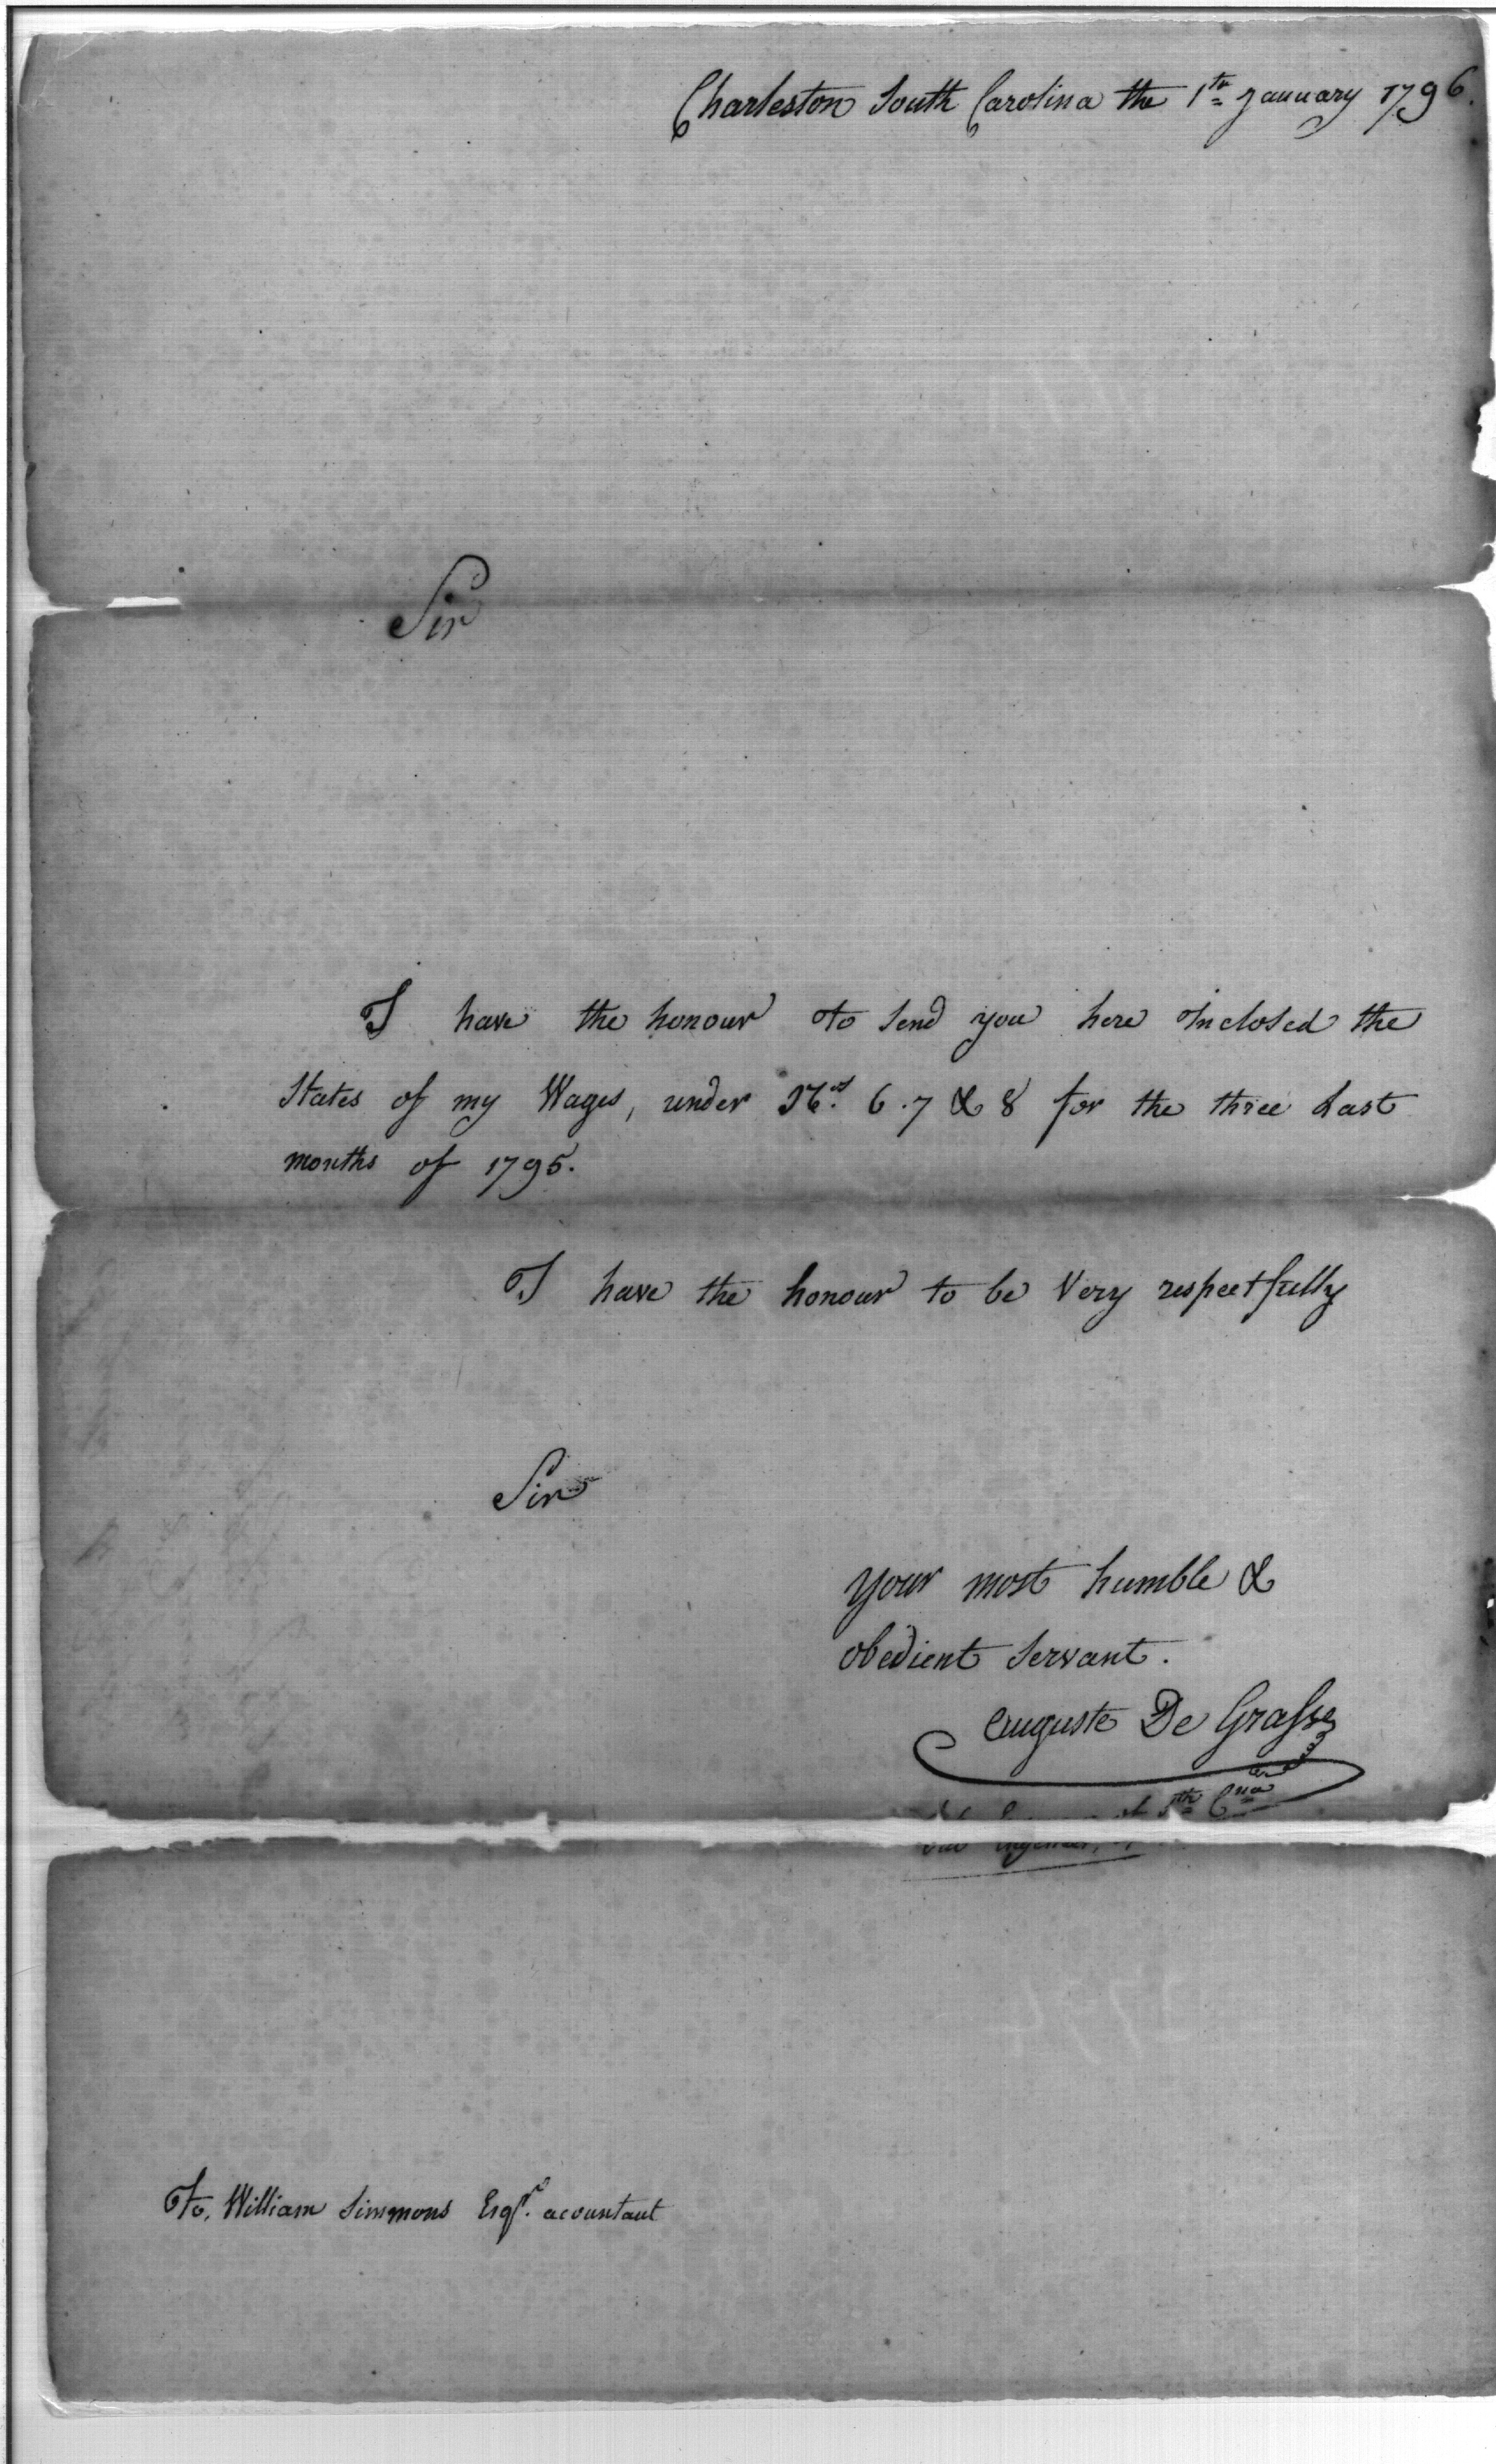 Charleston South Carolina the 1th January 1796.
Sir
I have the honour to Send you here inclosed the
States of my Wages, under Nos. 6.7 & 8 for the three Last
months of 1795.
I have the honour to be Very respectfully
Sir
your most humble &
obedient Servant.
Auguste De Grasse
Sth Cna
To, William Simmons Esqr. acountant